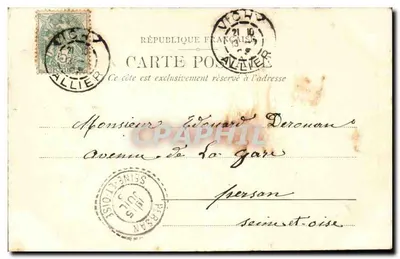 VICHY
ALLIER
VICHY
ALLIER
RÉPUBLIQUE FRANÇAISE
CARTE POSTALE
Ce côté est exclusivement réservé à l'adresse
CPRPHIL
Monsieur Edouard Derouan
avenue de La gare
persan
seine et oise
PERSAN
SEINE-ET-OISE